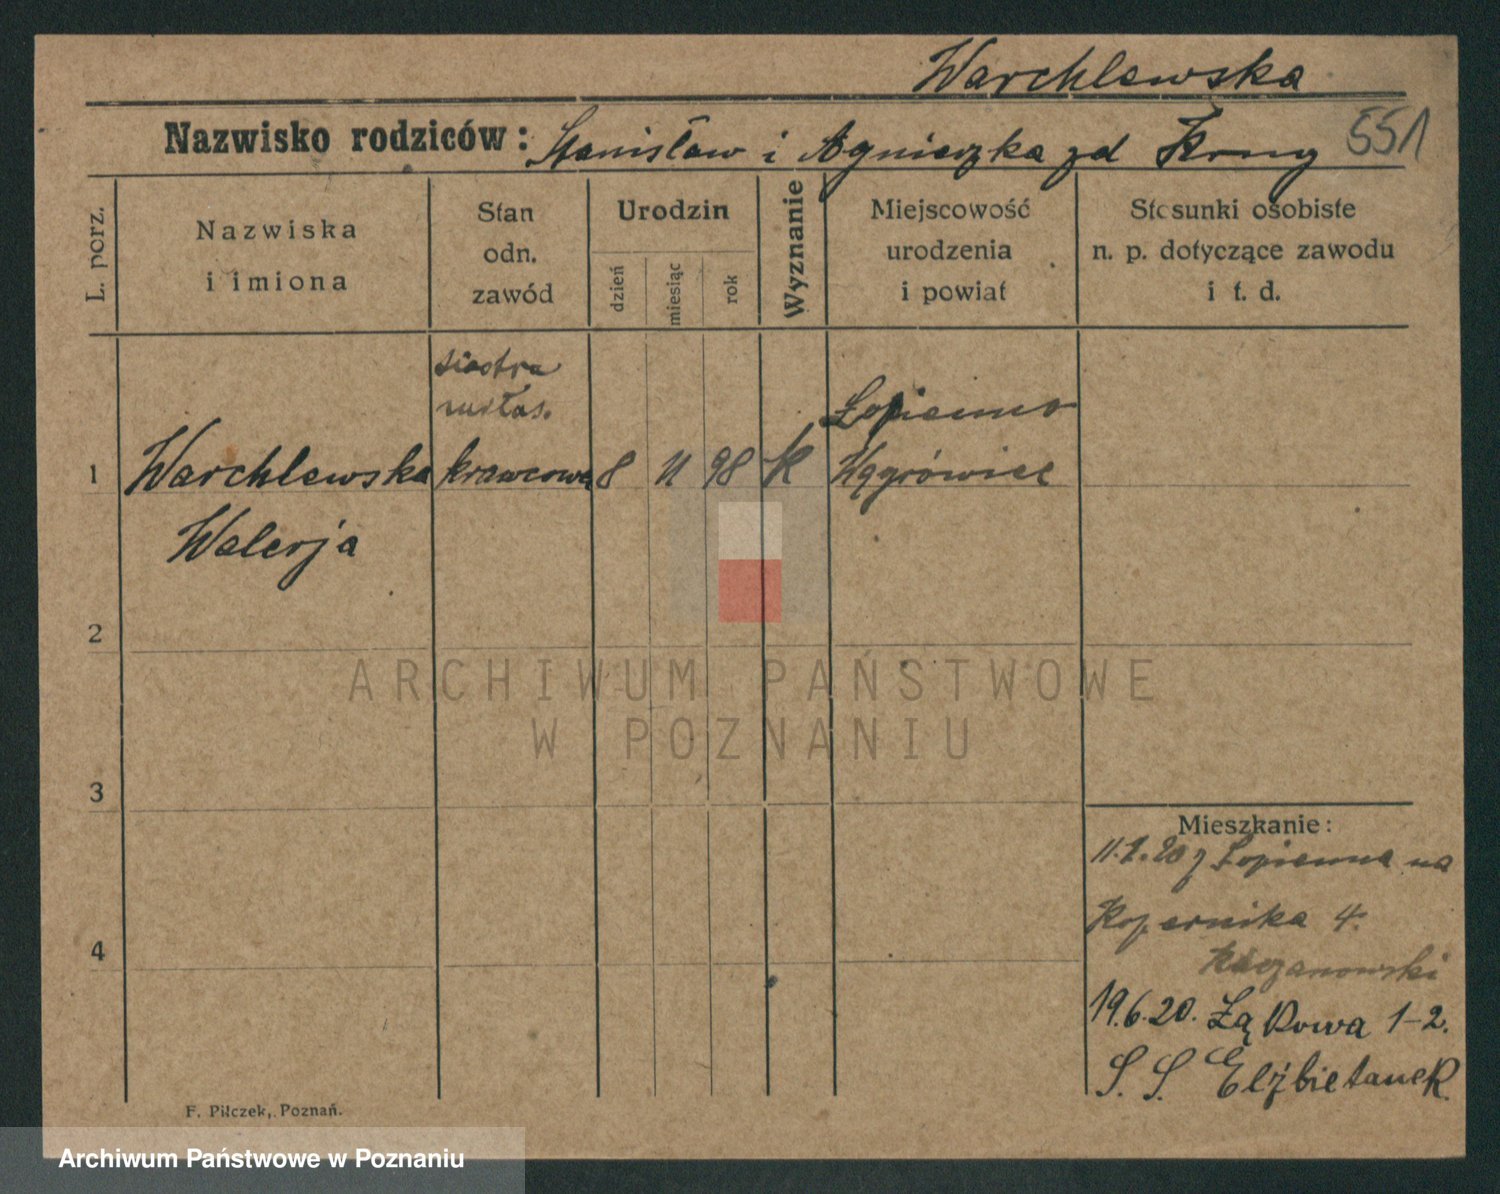 Warchlewska
Nazwisko rodziców: Stanisław i Agnieszka zd Krug 551
L. porz.
Nazwiska
i imiona
Stan
odn.
zawód
Urodzin
dzień
miesiąc
rok
Wyznanie
Miejscowość
urodzenia
i powiat
Stosunki osobiste
n. p. dotyczące zawodu
i t. d.
siostra
miłos.
Łopienno
1 Warchlewska krawcowa 8 11 98 K Wągrówiec
Walerja
2
ARCHIWUM PAŃSTWOWE
W POZNANIU
3
Mieszkanie:
z Łopienna na
Kopernika 4.
4
19.6.20. Łąkowa 1-2.
S. S. Elżbietanek
F. Pilczek, Poznań.
Archiwum Państwowe w Poznaniu